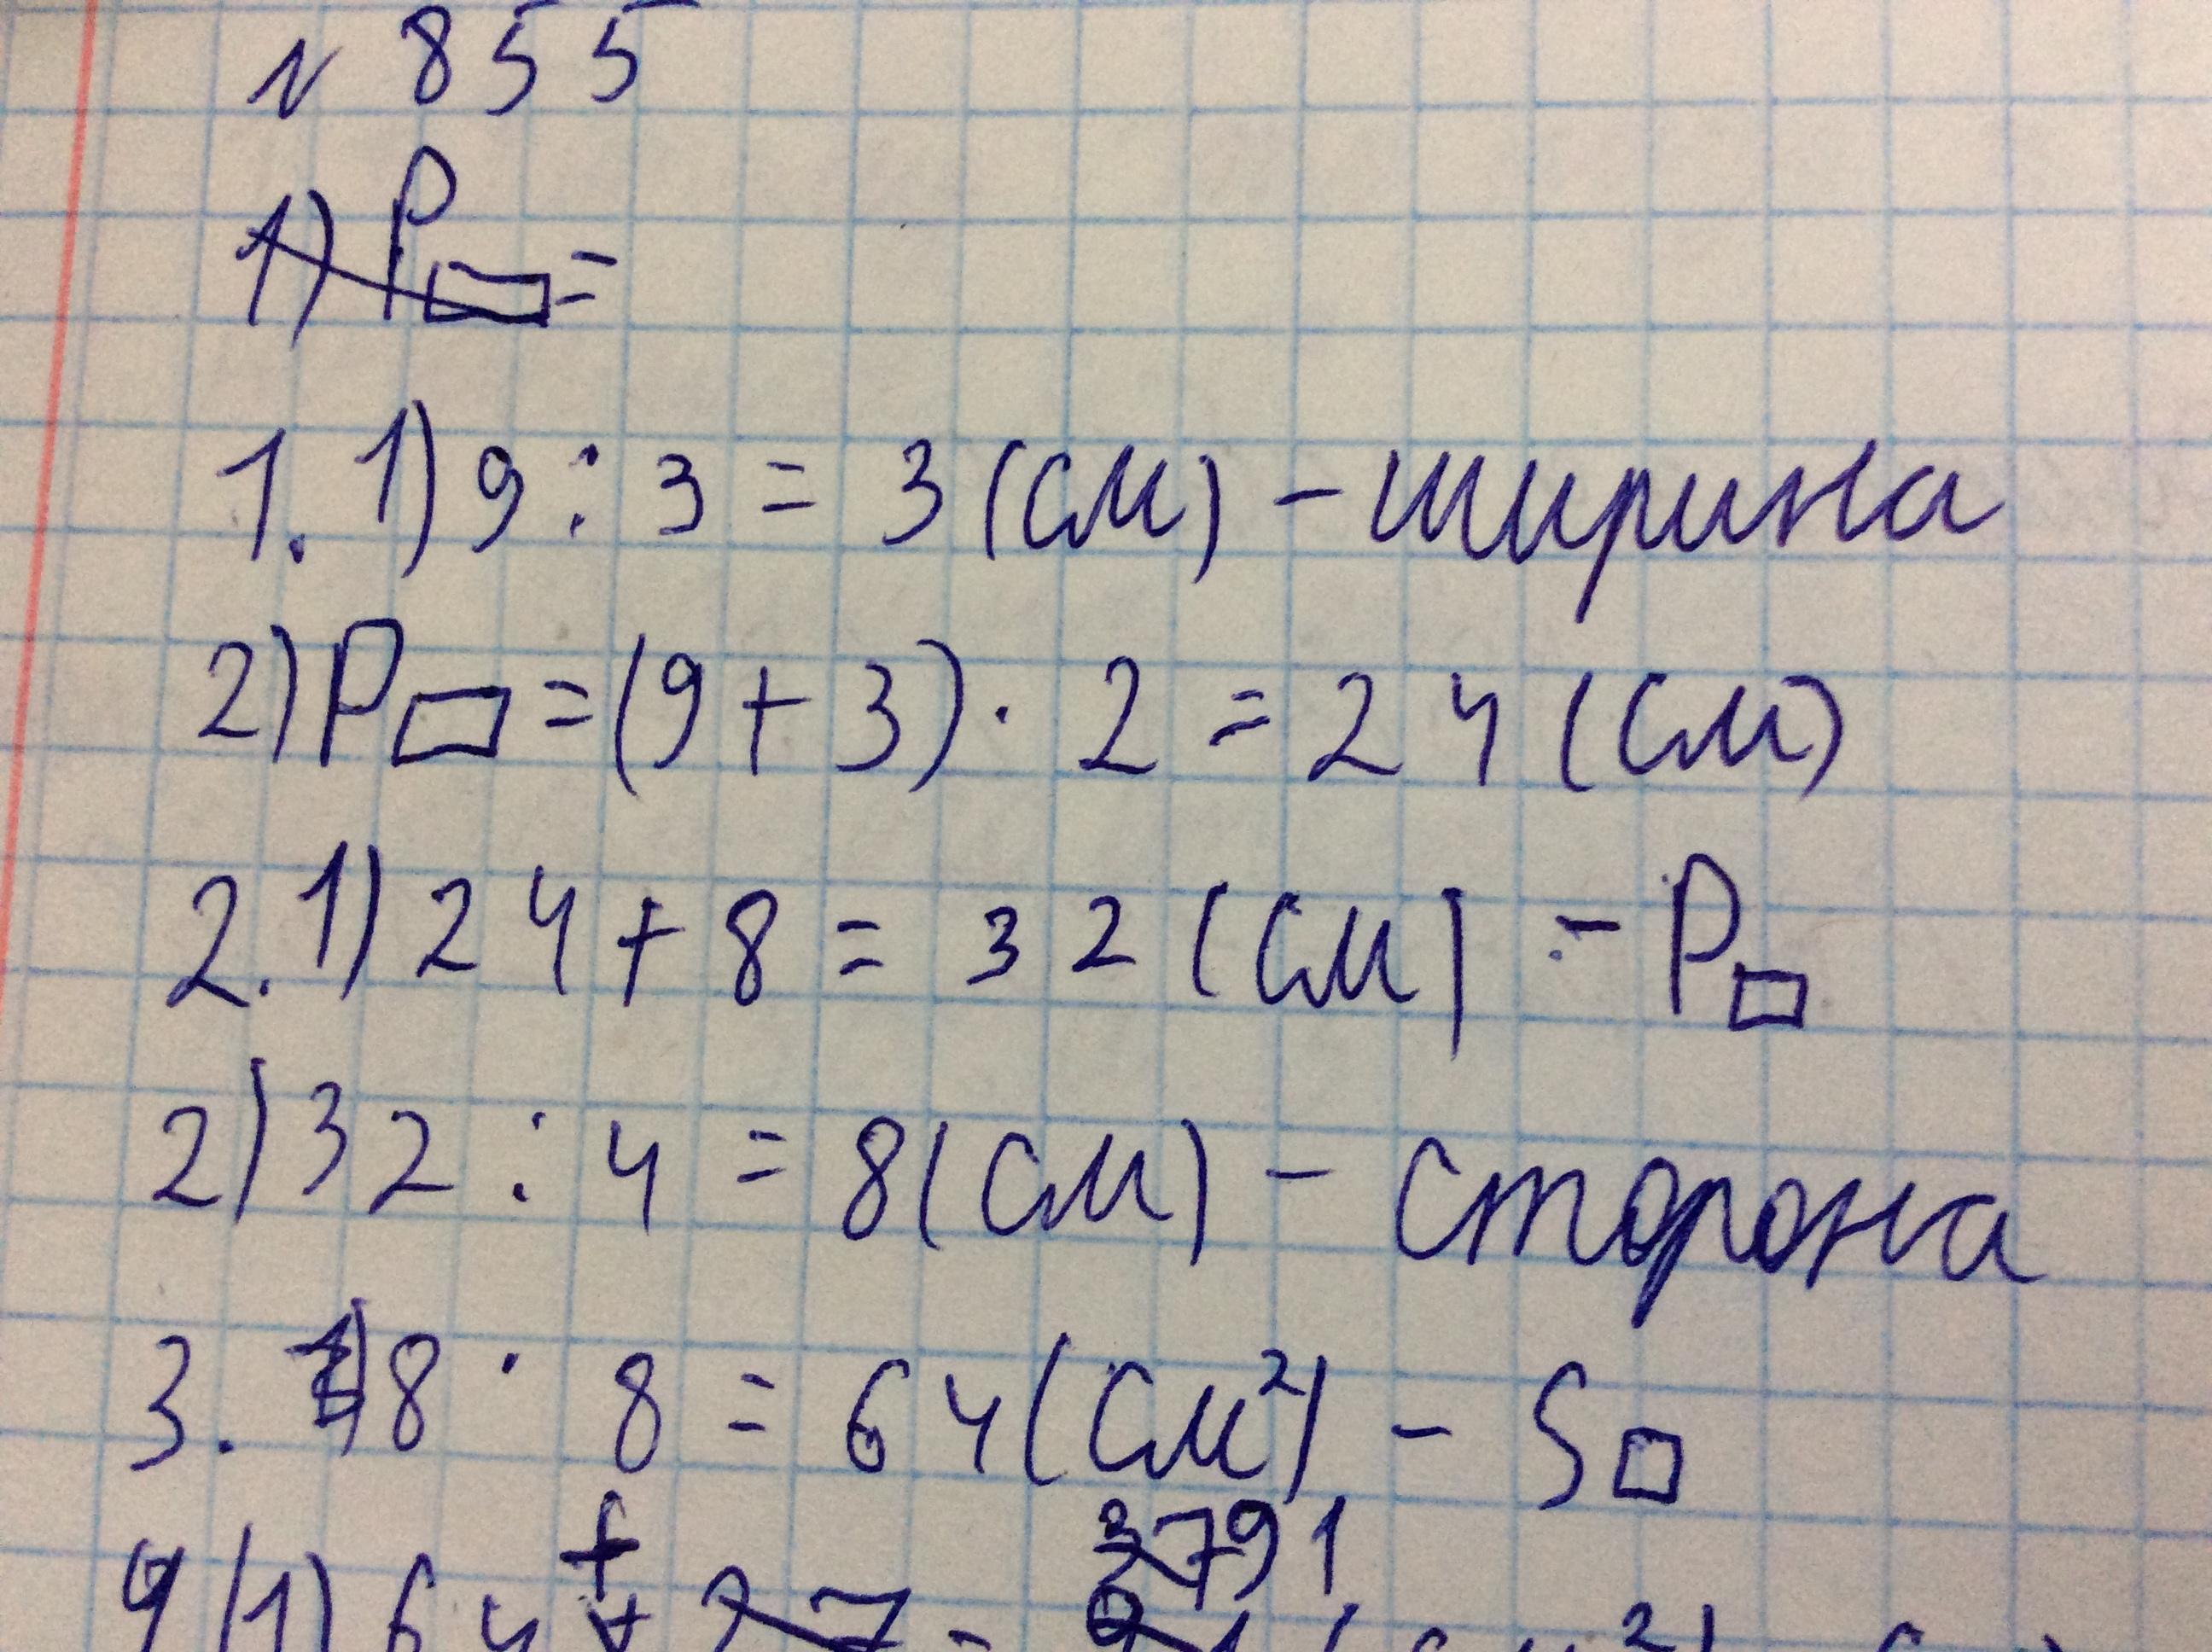 № 855
1) P▭ =
1. 1) 9 : 3 = 3 (см) – ширина
2) P▭ = (9 + 3) · 2 = 24 (см)
2. 1) 24 + 8 = 32 (см) – P□
2) 32 : 4 = 8 (см) – сторона
3. 1) 8 · 8 = 64 (см²) – S□